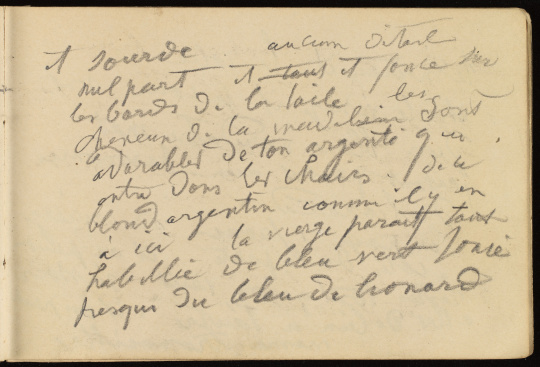 et sourde. aucun détail
nul part et tout et foncé sur
les bords de la toile les
cheveux de la madeleine sont
adorables de ton argenté qui
entre dans les chairs. de ce
blond argentin comme il y en
à ici la vierge parait toute
habillée de bleu vert foncé
presque du bleu de Leonard